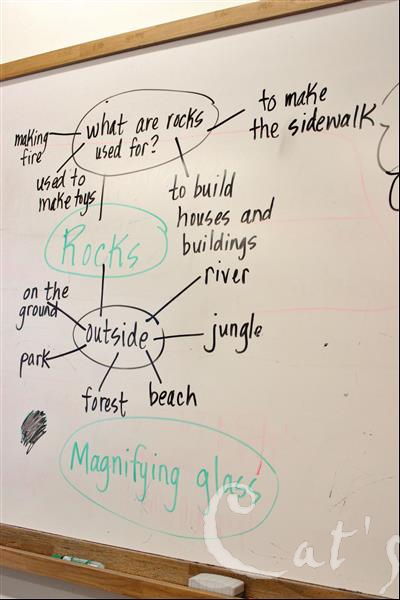 what are rocks
used for?
making
fire
used to
make toys
to make
the sidewalk
to build
houses and
buildings
Rocks
outside
on the
ground
park
forest
beach
jungle
river
Magnifying glass
Cat's